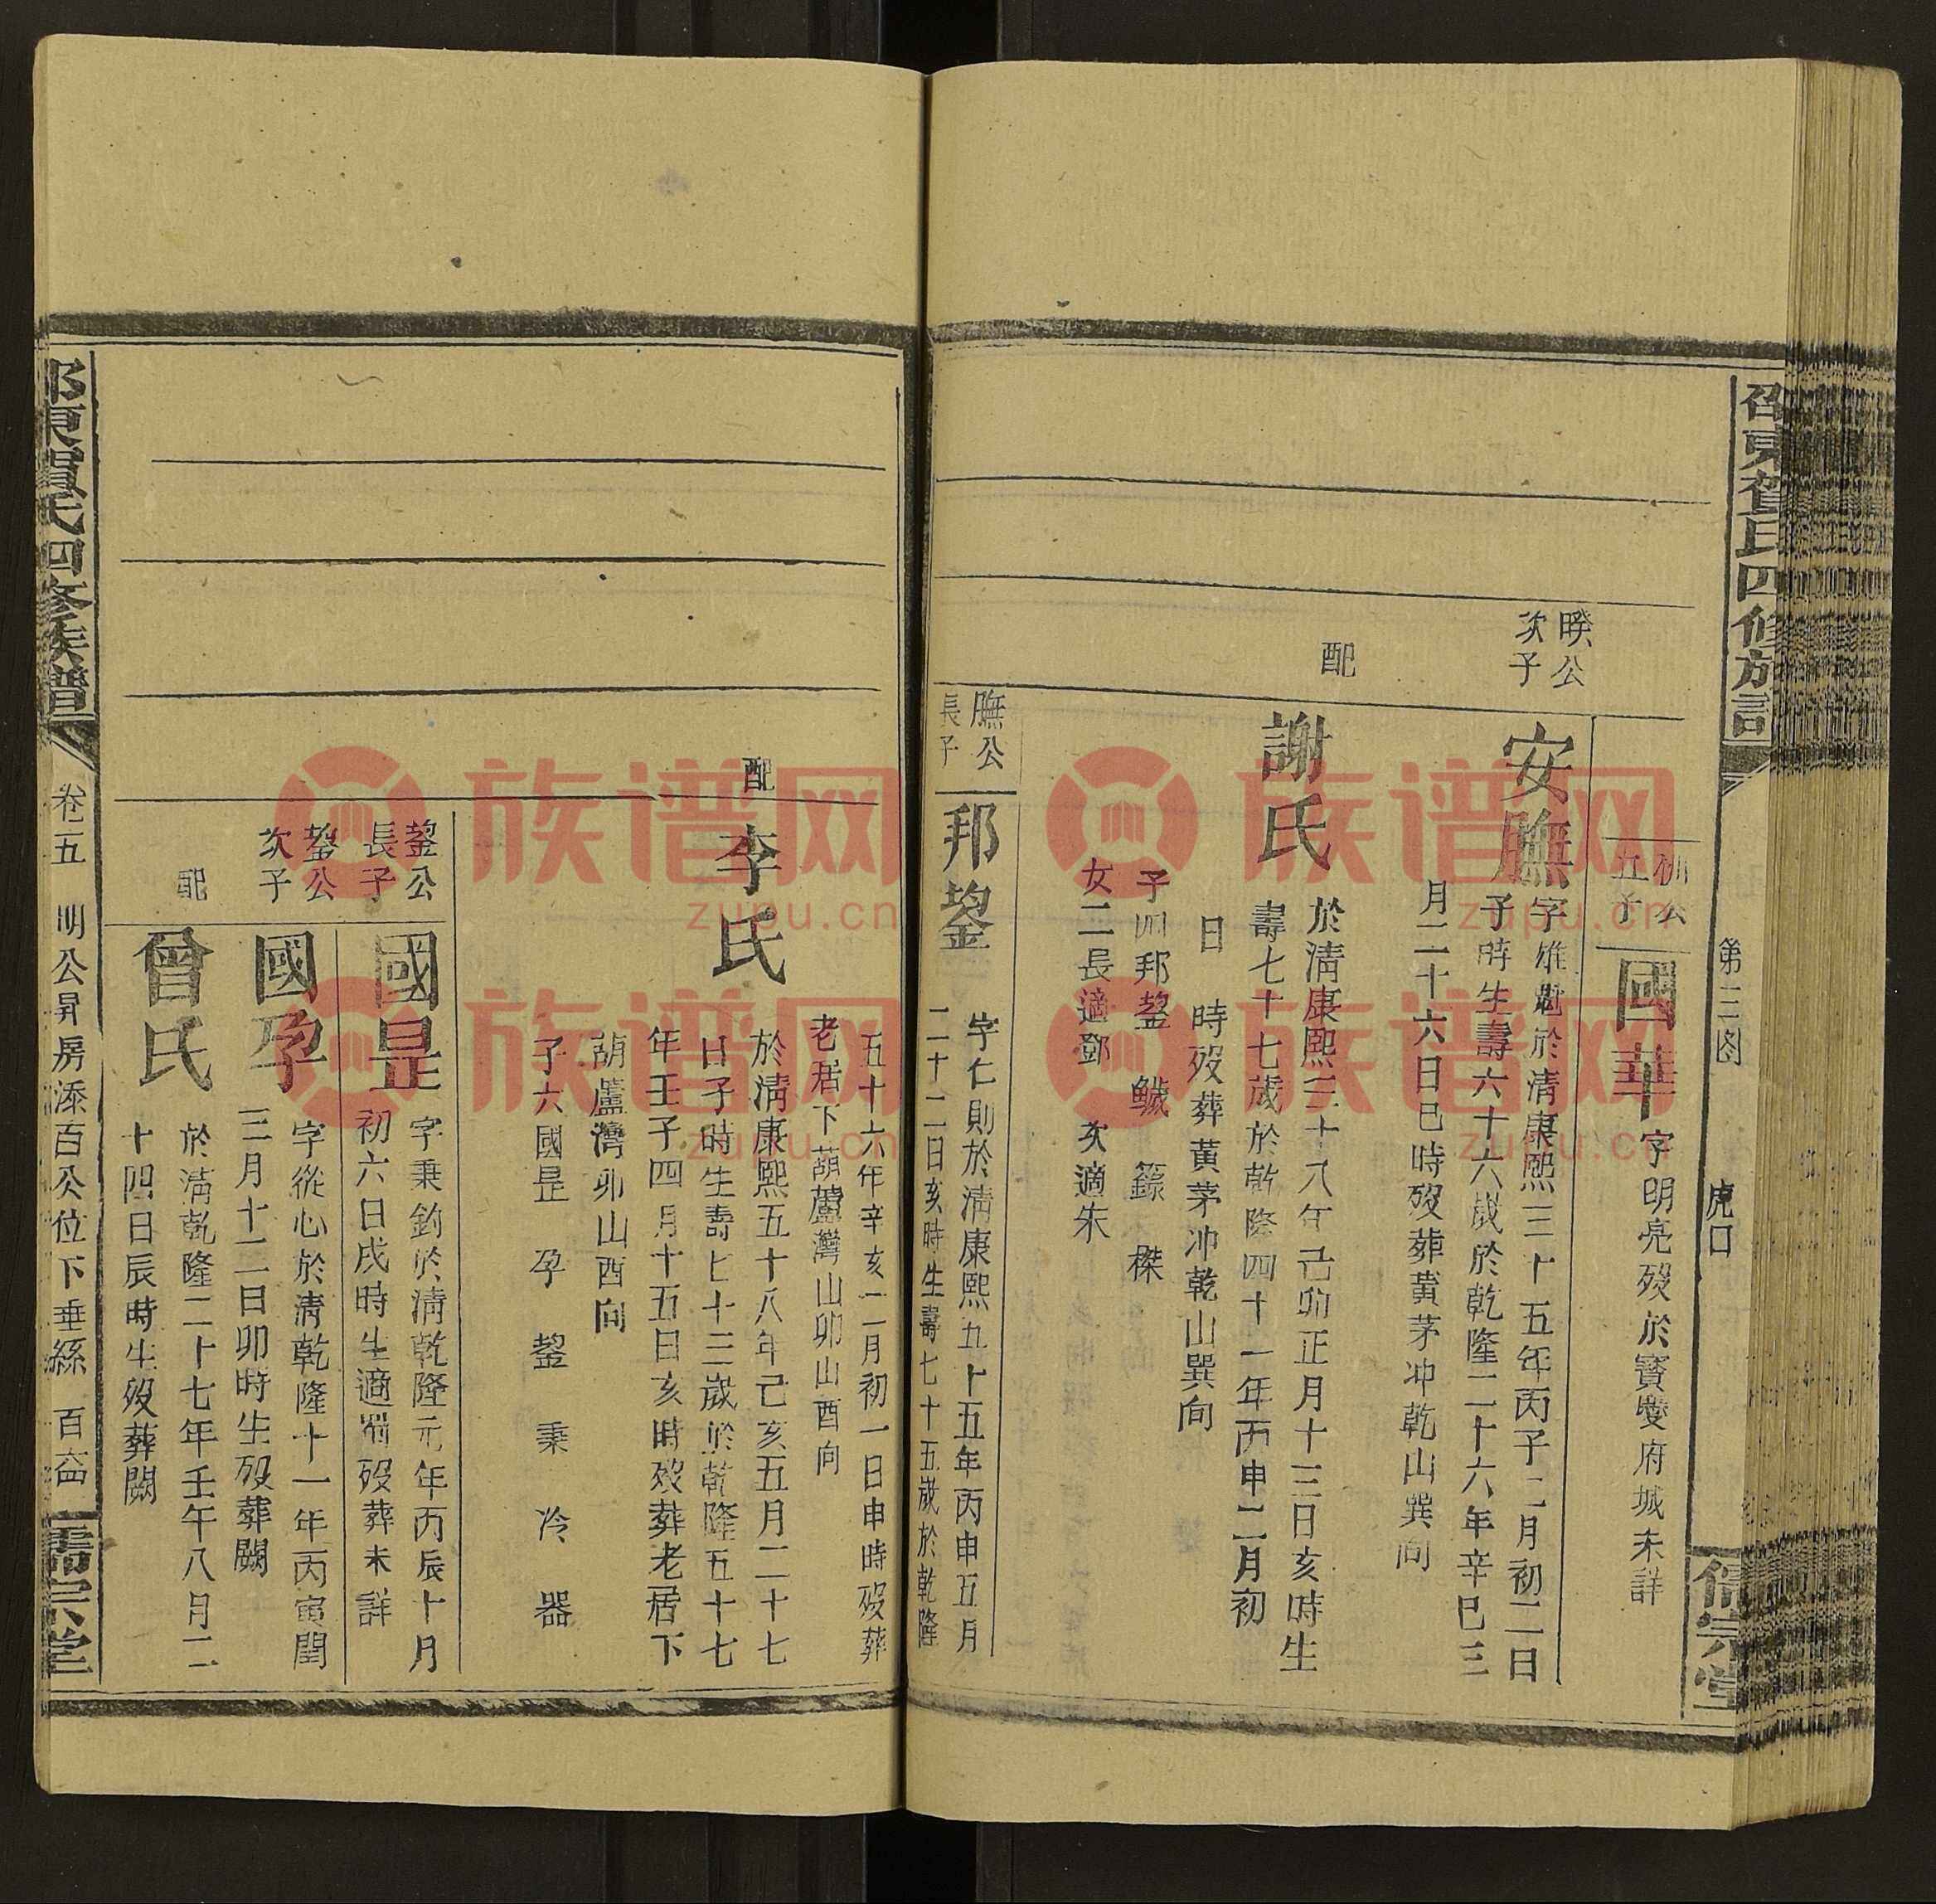 邵東賀氏四修族譜
第三图
虎口
儒宗堂
公
五子
國華
字明亮殁於寳慶府城未詳
睽公
次子
安膴
字雄勉於清康熙三十五年丙子二月初二日
子時生壽六十六歲於乾隆二十六年辛巳三
月二十六日巳時殁葬黄茅冲乾山巽向
配
謝氏
於清康熙三十八年己卯正月十三日亥時生
壽七十七歲於乾隆四十一年丙申二月初
日 時殁葬黄茅冲乾山巽向
子四邦鋆 鱥 籙 榤
女二長適鄧 次適朱
膴公
長子
邦鋆
字仁則於清康熙五十五年丙申五月
二十二日亥時生壽七十五歲於乾隆
五十六年辛亥二月初一日申時殁葬
老居下葫蘆灣山卯山酉向
配
李氏
於清康熙五十八年己亥五月二十七
日子時生壽七十三歲於乾隆五十七
年壬子四月十五日亥時殁葬老居下
葫蘆灣卯山酉向
子六國昰 孕 鋆 秉 冷 器
鋆公
長子
國昰
字秉鈞於清乾隆元年丙辰十月
初六日戌時生適蜀殁葬未詳
鋆公
次子
國孕
字從心於清乾隆十一年丙寅閏
三月十二日卯時生殁葬闕
配
曾氏
於清乾隆二十七年壬午八月二
十四日辰時生殁葬闕
邵東賀氏四修族譜
卷五
明公昇房添百公位下垂絲
儒宗堂
族谱网
zupu.cn
族谱网
zupu.cn
族谱网
zupu.cn
族谱网
zupu.cn